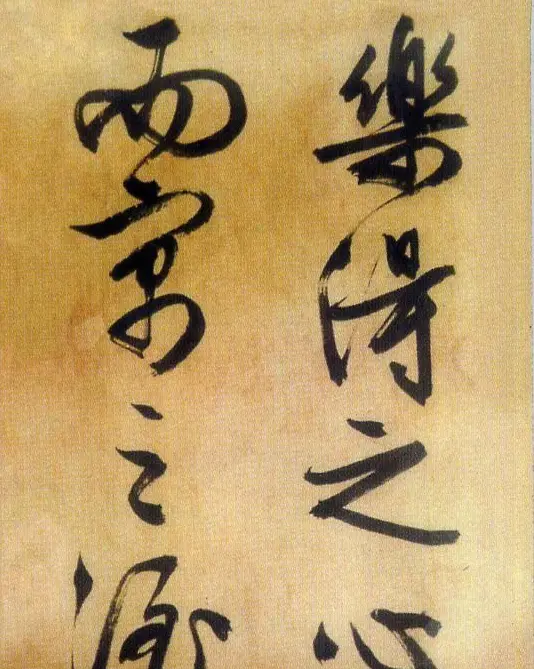 樂得之心
而寓之酒